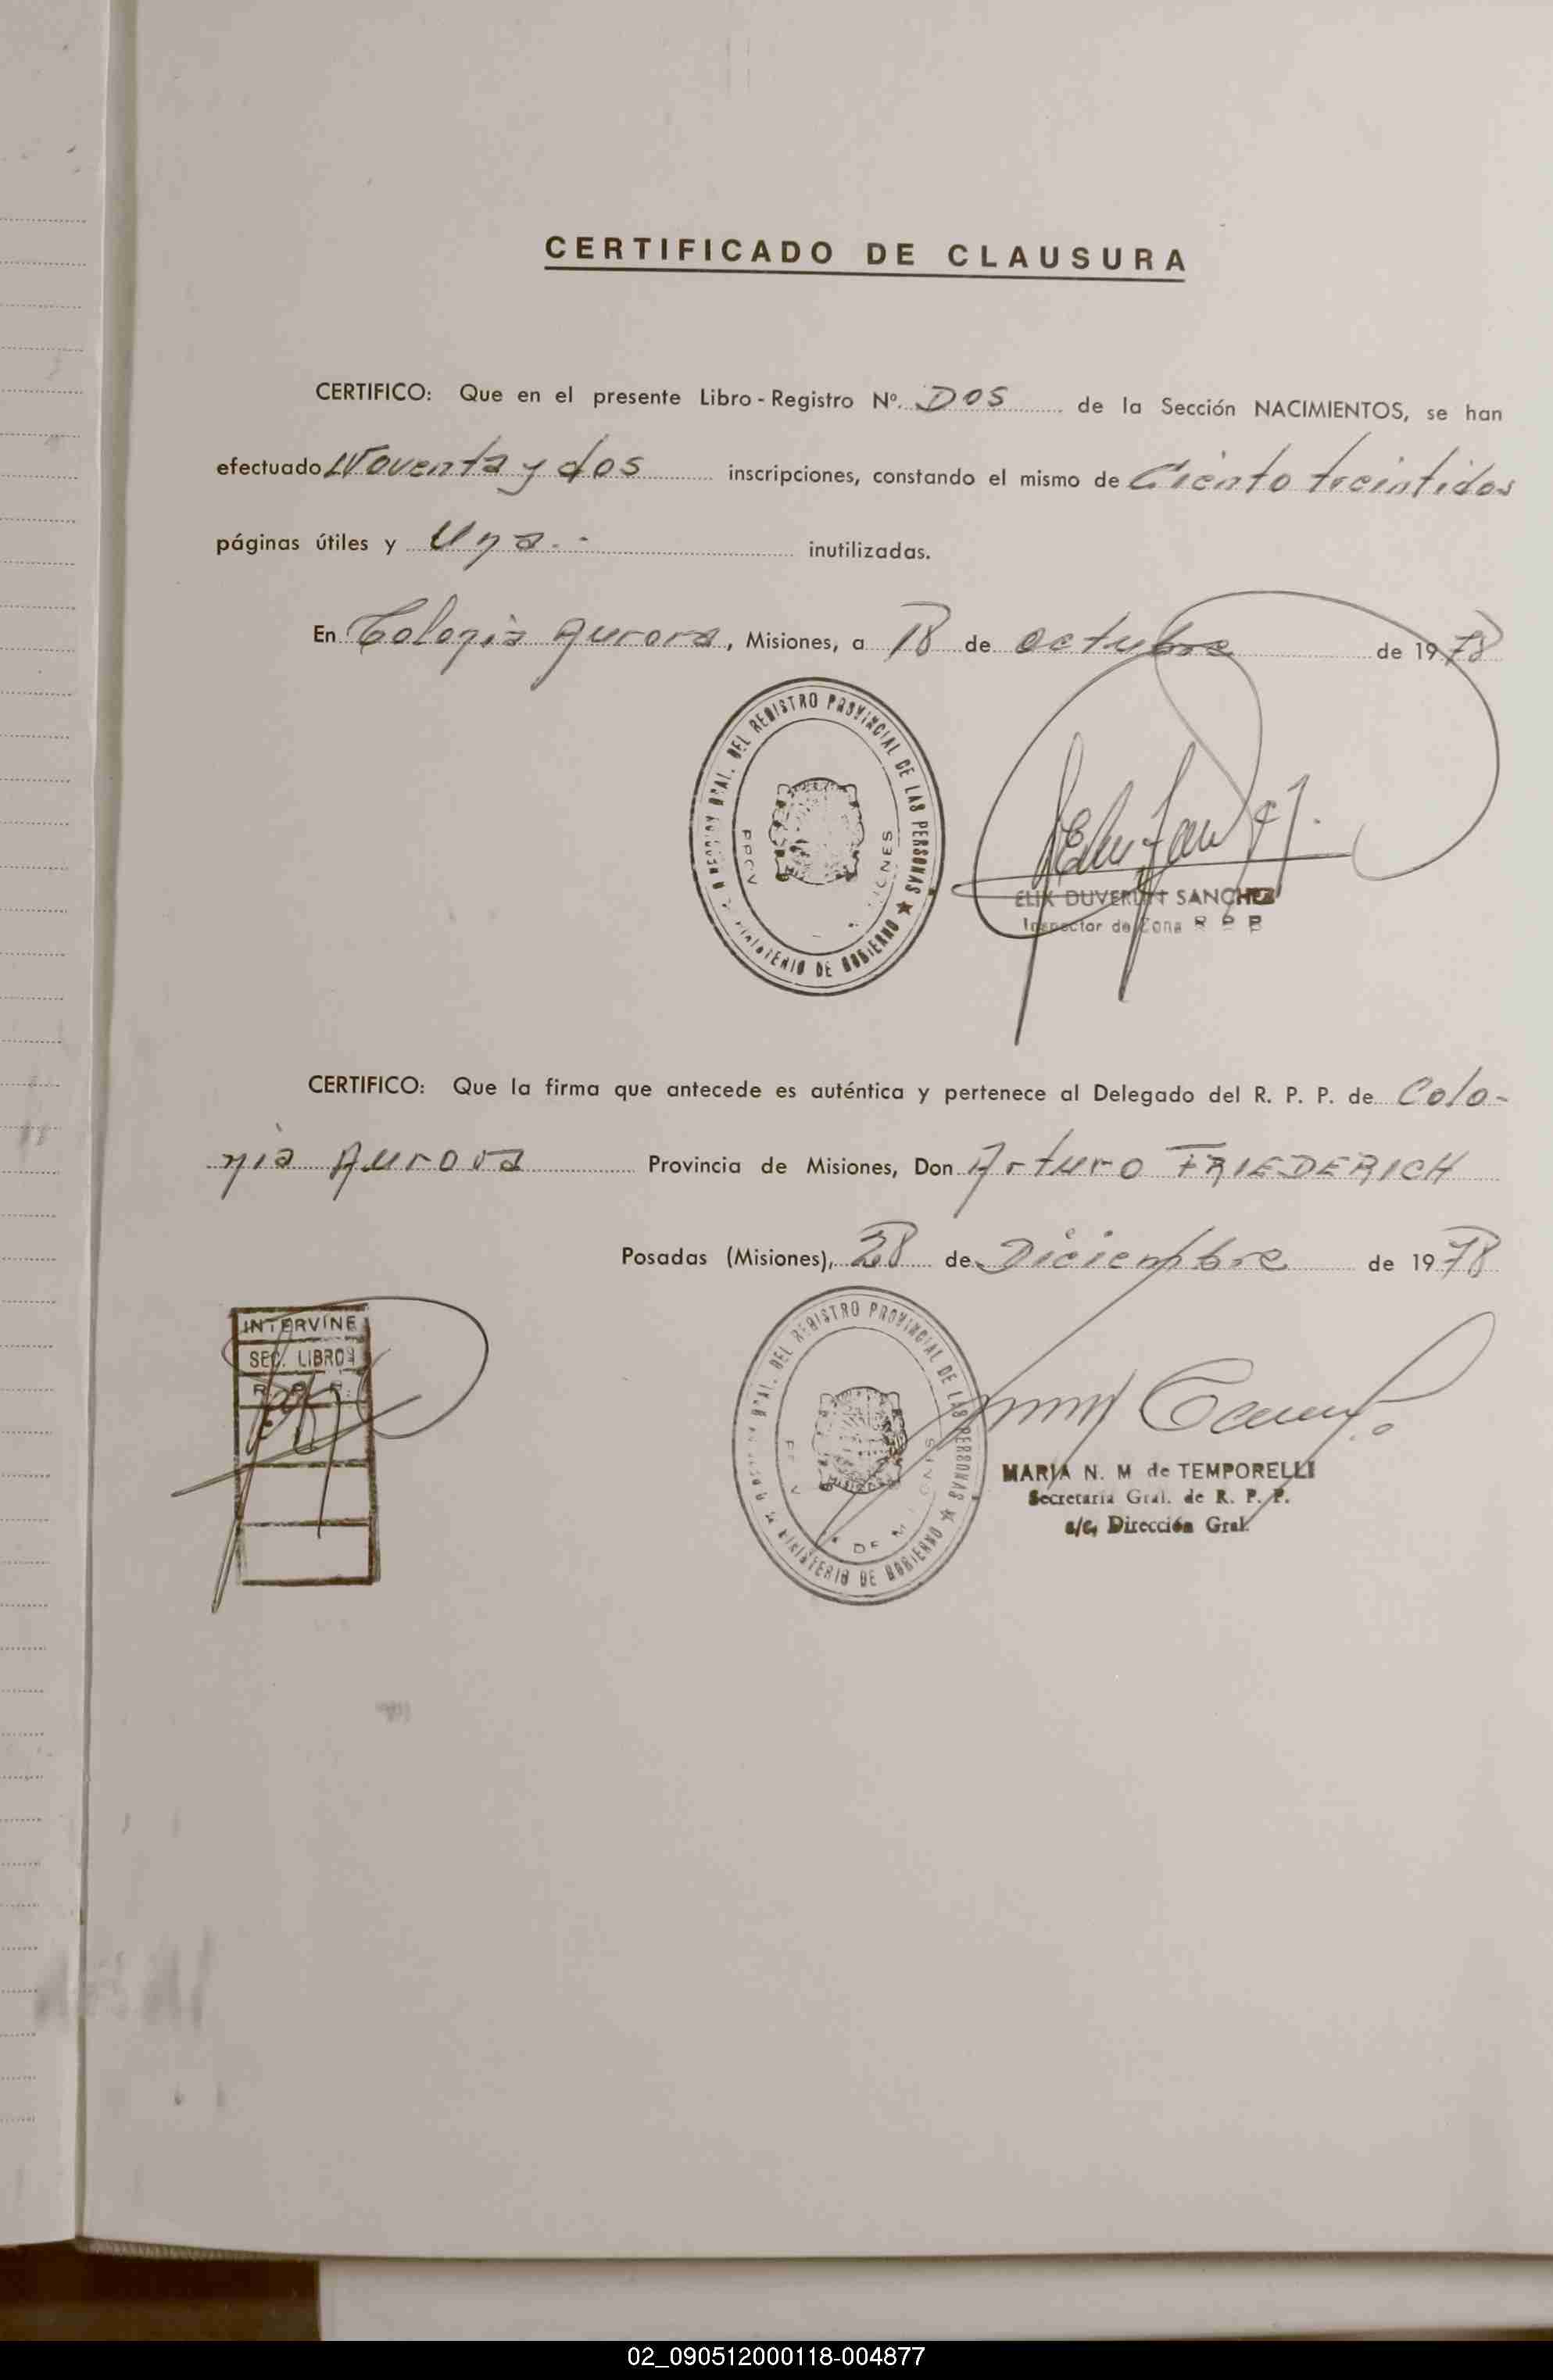 CERTIFICADO DE CLAUSURA
CERTIFICO: Que en el presente Libro-Registro Nº. DOS de la Sección NACIMIENTOS, se han
efectuado Noventa y dos inscripciones, constando el mismo de Ciento treintidos
páginas útiles y Una.- inutilizadas.
En Colonia Aurora, Misiones, a 18 de octubre de 1978
DEL REGISTRO PROVINCIAL DE LAS PERSONAS ★
MINISTERIO DE GOBIERNO
ELIX DUVERLIN SANCHEZ
Inspector de Zona R P P
CERTIFICO: Que la firma que antecede es auténtica y pertenece al Delegado del R. P. P. de Colo-
nia Aurora Provincia de Misiones, Don Arturo FRIEDERICH
Posadas (Misiones), 28 de Diciembre de 1978
INTERVINE
SEC. LIBROS
R. P. P.
DEL REGISTRO PROVINCIAL DE LAS PERSONAS ★
MINISTERIO DE GOBIERNO
MARIA N. M de TEMPORELLI
Secretaria Gral. de R. P. P.
a/c, Dirección Gral.
02_090512000118-004877